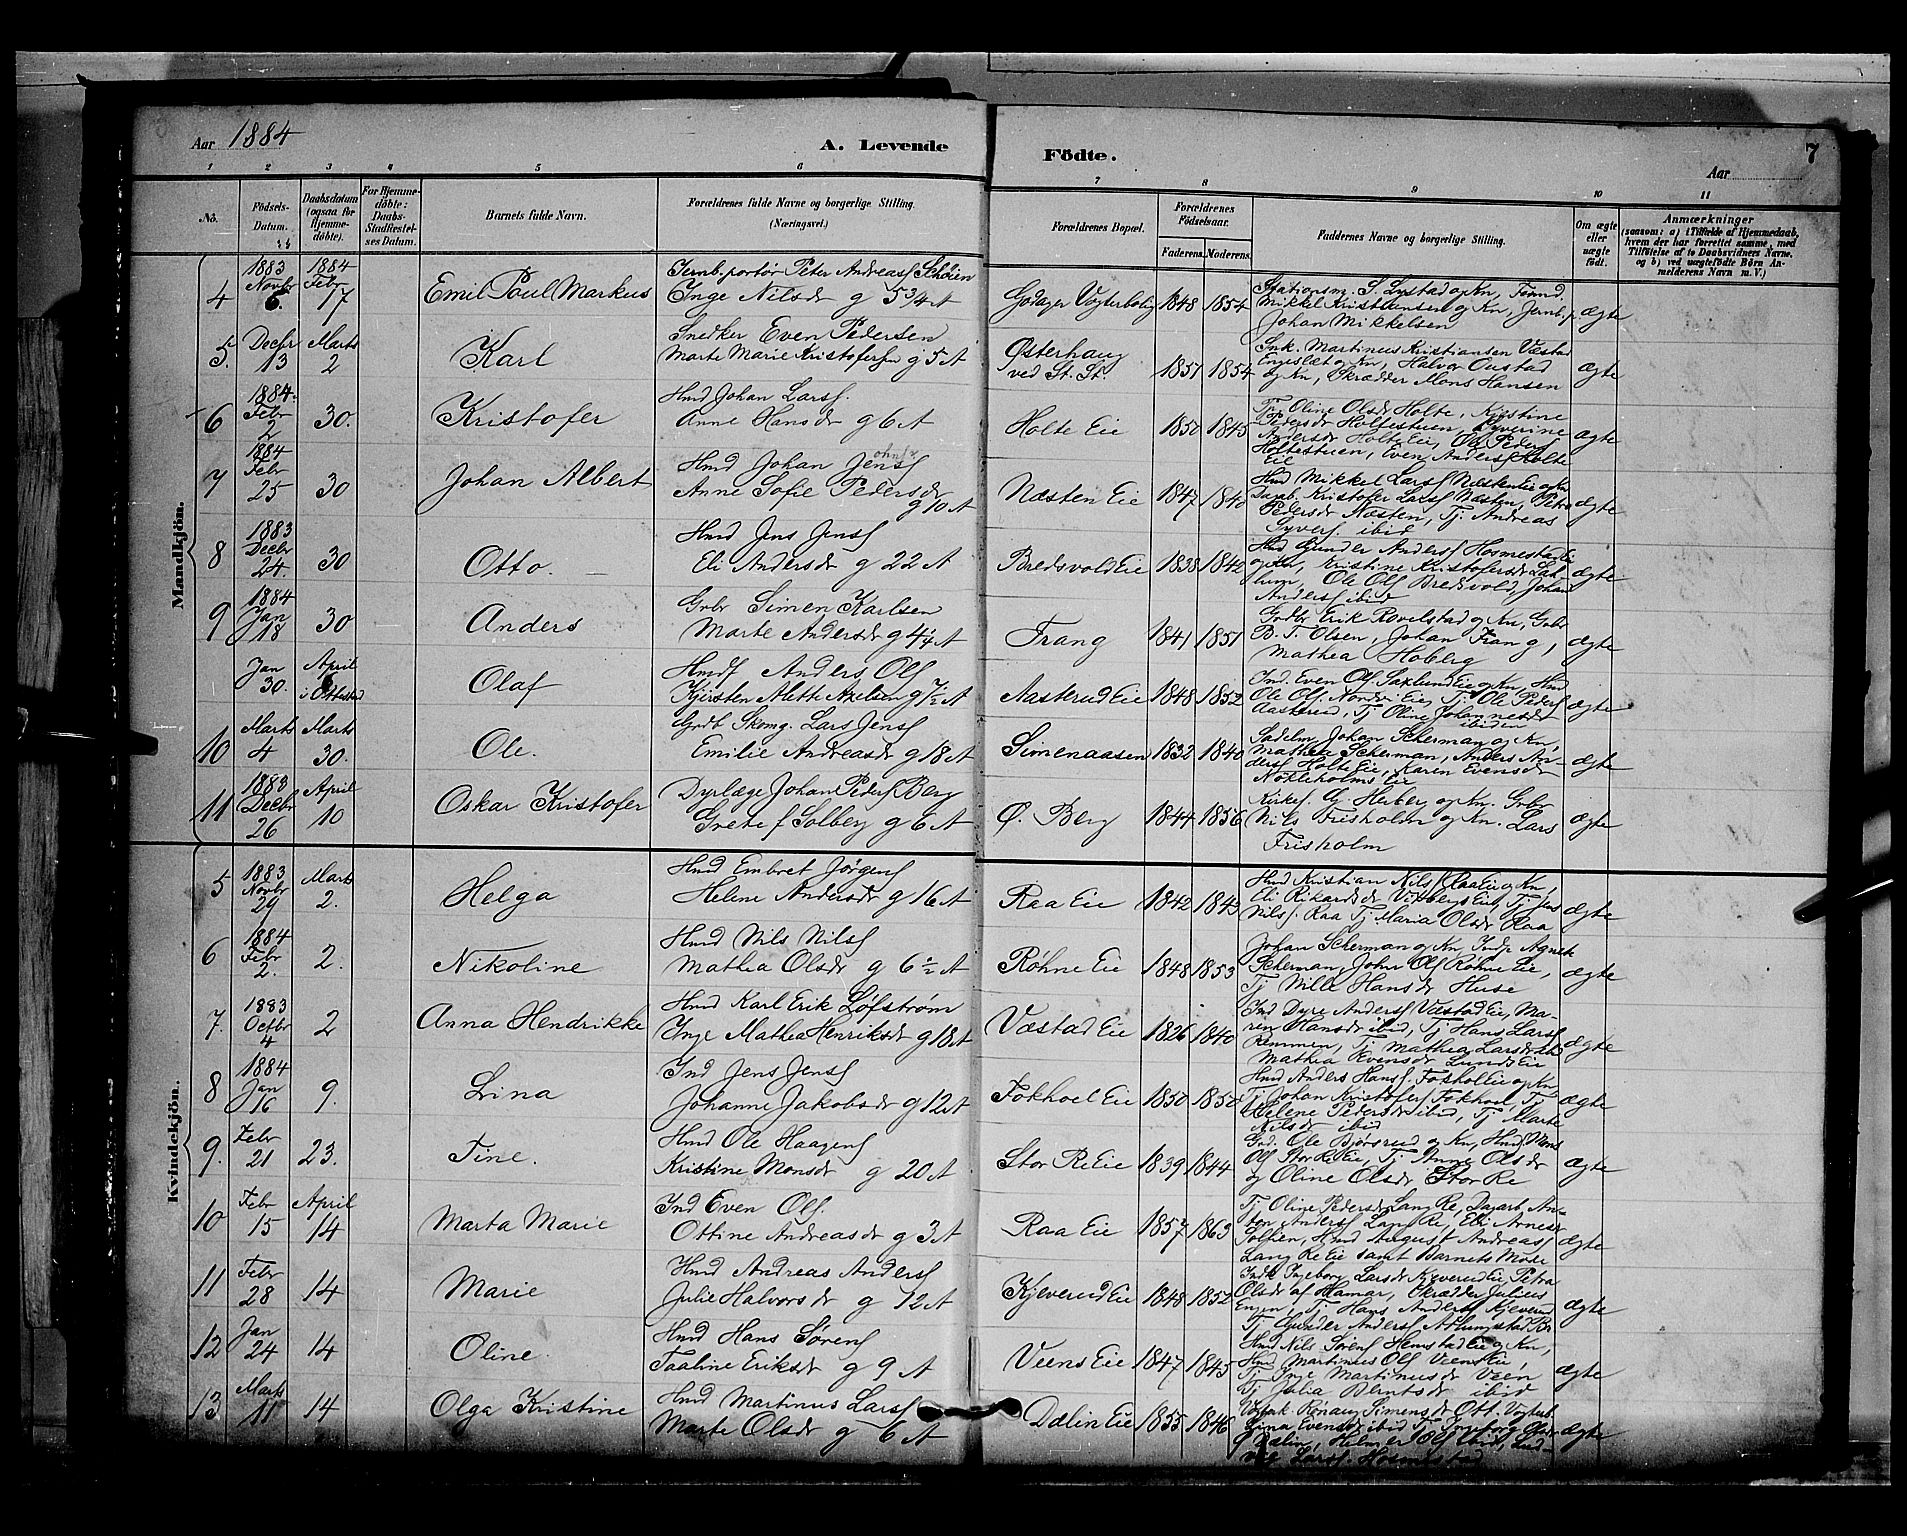 Aar 1884
A. Levende
Födte.
7
Aar
1 2 3 4 5 6 7 8 9 10 11
No.
Födsels-
Datum.
Daabsdatum
(ogsaa for
Hjemme-
döbte).
For Hjemme-
döbte:
Daabs-
Stadfæstel-
ses Datum.
Barnets fulde Navn.
Forældrenes fulde Navne og borgerlige Stilling.
(Næringsvei.)
Forældrenes Bopæl.
Forældrenes
Födselsaar.
Faderens. Moderens.
Faddernes Navne og borgerlige Stilling.
Om ægte
eller
uægte
födt.
Anmærkninger
(saasom: a) i Tilfælde af Hjemmedaab,
hvem der har forrettet samme, med
Tilföielse af to Daabsvidners Navne,
og b) ved uægtefödte Börn An-
melderens Navn m. V.)
Mandkjön.
4
1883
Novbr
6.
1884
Febr
17
Emil Poul Markus
Jernb. portör Peter Andreass Schöien
Inge Nilsdr g 5 3/4 A
Godager Vogterbolig
1848 1854
Stationsm. S. Lystad og Kn,
Mikkel Kristiansen og Kn, Jernb.
Johan Mikkelsen
ægte
5.
Decbr
13
Marts
2
Karl
Snedker Even Pedersen
Marte Marie g 5 A
Østerhaug
ved St. St.
1851 1854
Snk. Martinus Kristiansen Væstad
og Kn, Halvor Oustad
og Kn, Skrædder Mons Hansen
ægte
6
1884
Febr
2
30.
Kristofer
Hmd Johan Larss.
Anne Hansdr g 6 A
Holte Eie
1850 1845
Oline Olsdr Holte,
Holtestuen,
Andersdr Holte Eie, Ole Peders
Holtestuen, Even Anderss Holte
Eie
ægte
7
1884
Febr
25
30
Johan Albert
Hmd Johan Jenss
Anne Sofie Pedersdr
g 10 A
Næsten Eie
1847 1840
Hmd Mikkel Larss Næsten Eie og Kn
Kristofer Larss Næsten, Petra
Pedersdr Næsten, Tj. Andreas
Syvers. ibid
ægte
8
1883
Decbr
24.
30
Otto.
Hmd Jens Jenss
Eli Andersdr g 22 A
Bredsvold Eie
1838 1842
Hmd Gunder Anderss Hosmestad Ei
og Kn, Kristine Kristofersdr
Ole Ols Bredsvold, Johan
Anderss ibid
ægte
9
1884
Jan
18
30
Anders
Grbr Simen Karlsen
Marte Andersdr g 4 1/4 A
Frang
1841 1851
Grdbr Erik Rovelstad og Kn, Grbr
B. T. Olsen, Johan Frang,
Mathea Hoberg
ægte
Jan
30.
April
6
i Ottestad
Olaf
Hmdf Anders Ols
Kjersten Mette Axelsen g 7 1/2 A
Aasterud Eie
1848 1852
Ind. Even Ols Saxlund Eie og Kn, Hmd
Ole Ols. Nordvi Eie, Tj. Ole Peders
Aasterud, Tj Oline Johannesdr
ibiden
ægte
10
Marts
4
Marts
30.
Ole.
Grdb Skomg. Lars Jenss
Emilie Andreasdr g 18 A
Simenaasen
1832 1840
Sadelm. Johan Scherman og Kn,
Mathea Scherman, Anders An-
derss Holte Eie, Karen Evensdr
Nökleholms Eie
ægte
11
1883
Decbr
26
April
10
Oskar Kristofer
Dyrlæge Johan Peders Berg
Grete f Solberg g 6 A
Ø. Berg
1844 1856
Kirkes. G. Herberg og Kn. Grbr
Nils Frisholm og Kn. Lars
Frisholm
ægte
Kvindekjön.
5
1883
Novbr
29
Marts
2.
Helga
Hmd Embret Jörgens
Helene Andersdr g 16 A
Raa Eie
1842 1843
Hmd Kristian Nilss Raa Eie og Kn,
Eli Rikardsdr Vikbergs Eie, Tj. Jens
Nilss. Raa Tj. Maria Olsdr Raa
ægte
6
1884
Febr
2.
2.
Nikoline
Hmd Nils Nilss
Mathea Olsdr g 6 1/2 A
Röhne Eie
1848 1853
Johan Scherman og Kn, Agnete
Scherman, John Ols Röhne Eie,
Tj Nille Hansdr Huse
ægte
7.
1883
Octbr
4
2
Anna Hendrikke
Hmd Karl Erik Löfström
Inge Mathea Henriksdr g 18 A
Væstad Eie
1826 1840
Ind Dyre Anderss Væstad Eie, Ma-
ren Hansdr ibid, Tj Hans Larss
Remmen, Tj Mathea Larsdr ibid
Mathea Evensdr Lund Eie
ægte
8
1884
Jan
16
9.
Lina
Ind Jens Jenss
Johanne Jakobsdr g 12 A
Fokhoel Eie
1850 1850
Hmd Anders Hanss. Fokhol Eie og Kn
Tj Johan Kristofers Fokhoel Tj
Helene Pedersdr ibid, Tj Marte
Nilsdr ibid
ægte
9.
Febr
21
23.
Tine.
Hmd Ole Haagens
Kristine Monsdr g 20 A
Stor Re Eie
1839 1844
Grd. Ole Björsrud og Kn, Hmd Mons
Ols Stor Re Eie, Tj Anne Olsdr
og Oline Olsdr Stor Re
ægte
10
Febr
15
April
14
Marta Marie
Ind Even Ols.
Ottine Andreasdr g 3 A
Raa Eie
1857 1863
Tj Oline Pedersdr Lang Re, Dagarb. An-
ton Anderss Lang Re, Eli Arnesdr
Solhien, Hmd August Andreass
Lang Re Eie samt Barnets Mode
ægte
11
Febr
28
14
Marie
Hmd Andreas Anderss
Julie Halvorsdr g 12 A
Kjeverud Eie
1848 1852
Ingeborg Larsdr Kjeverud Eie, Petra
Olsdr af Hamar, Skrædder Julius
Engen, Tj Hans Anderss Kjeverud
Tj Gunder Anderss
ægte
12
Jan
24
14
Oline.
Hmd Hans Sörens
Taaline Eriksdr g 9 A
Veens Eie
1847 1845
Hmd Nils Sörens Hemstad Eie og Kn,
Hmd Martinus Ols Veens Eie,
Tj Inge Martinusdr Veen
Tj Julia Berntsdr ibid
ægte
13
Marts
11
14
Olga Kristine
Hmd Martinus Larss
Marte Olsdr g 6 A
Dælin Eie
1855 1846
Rönaug Simensdr Ott. Vogterb.
Lina Evensdr ibid Tj Ingeborg Olsdr
Dælin, Helmer Ols ibid, Lud-
vig Larss. Hosmestad
ægte